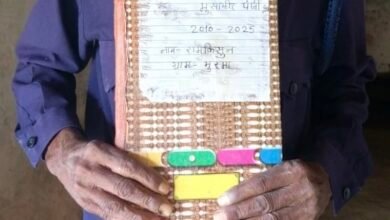 मुसाफिर पंजी
2010 - 2025
नाम- रामकिसुन
ग्राम- मुरमा